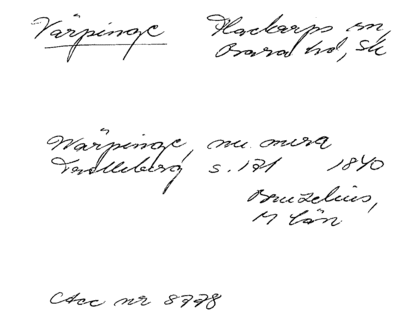 Värpinge Flackarps sn,
Bara hd, Sk
Wärpinge, nu mera
Trolleberg s. 171 1840
Bruzelius,
M län
Acc nr 8778